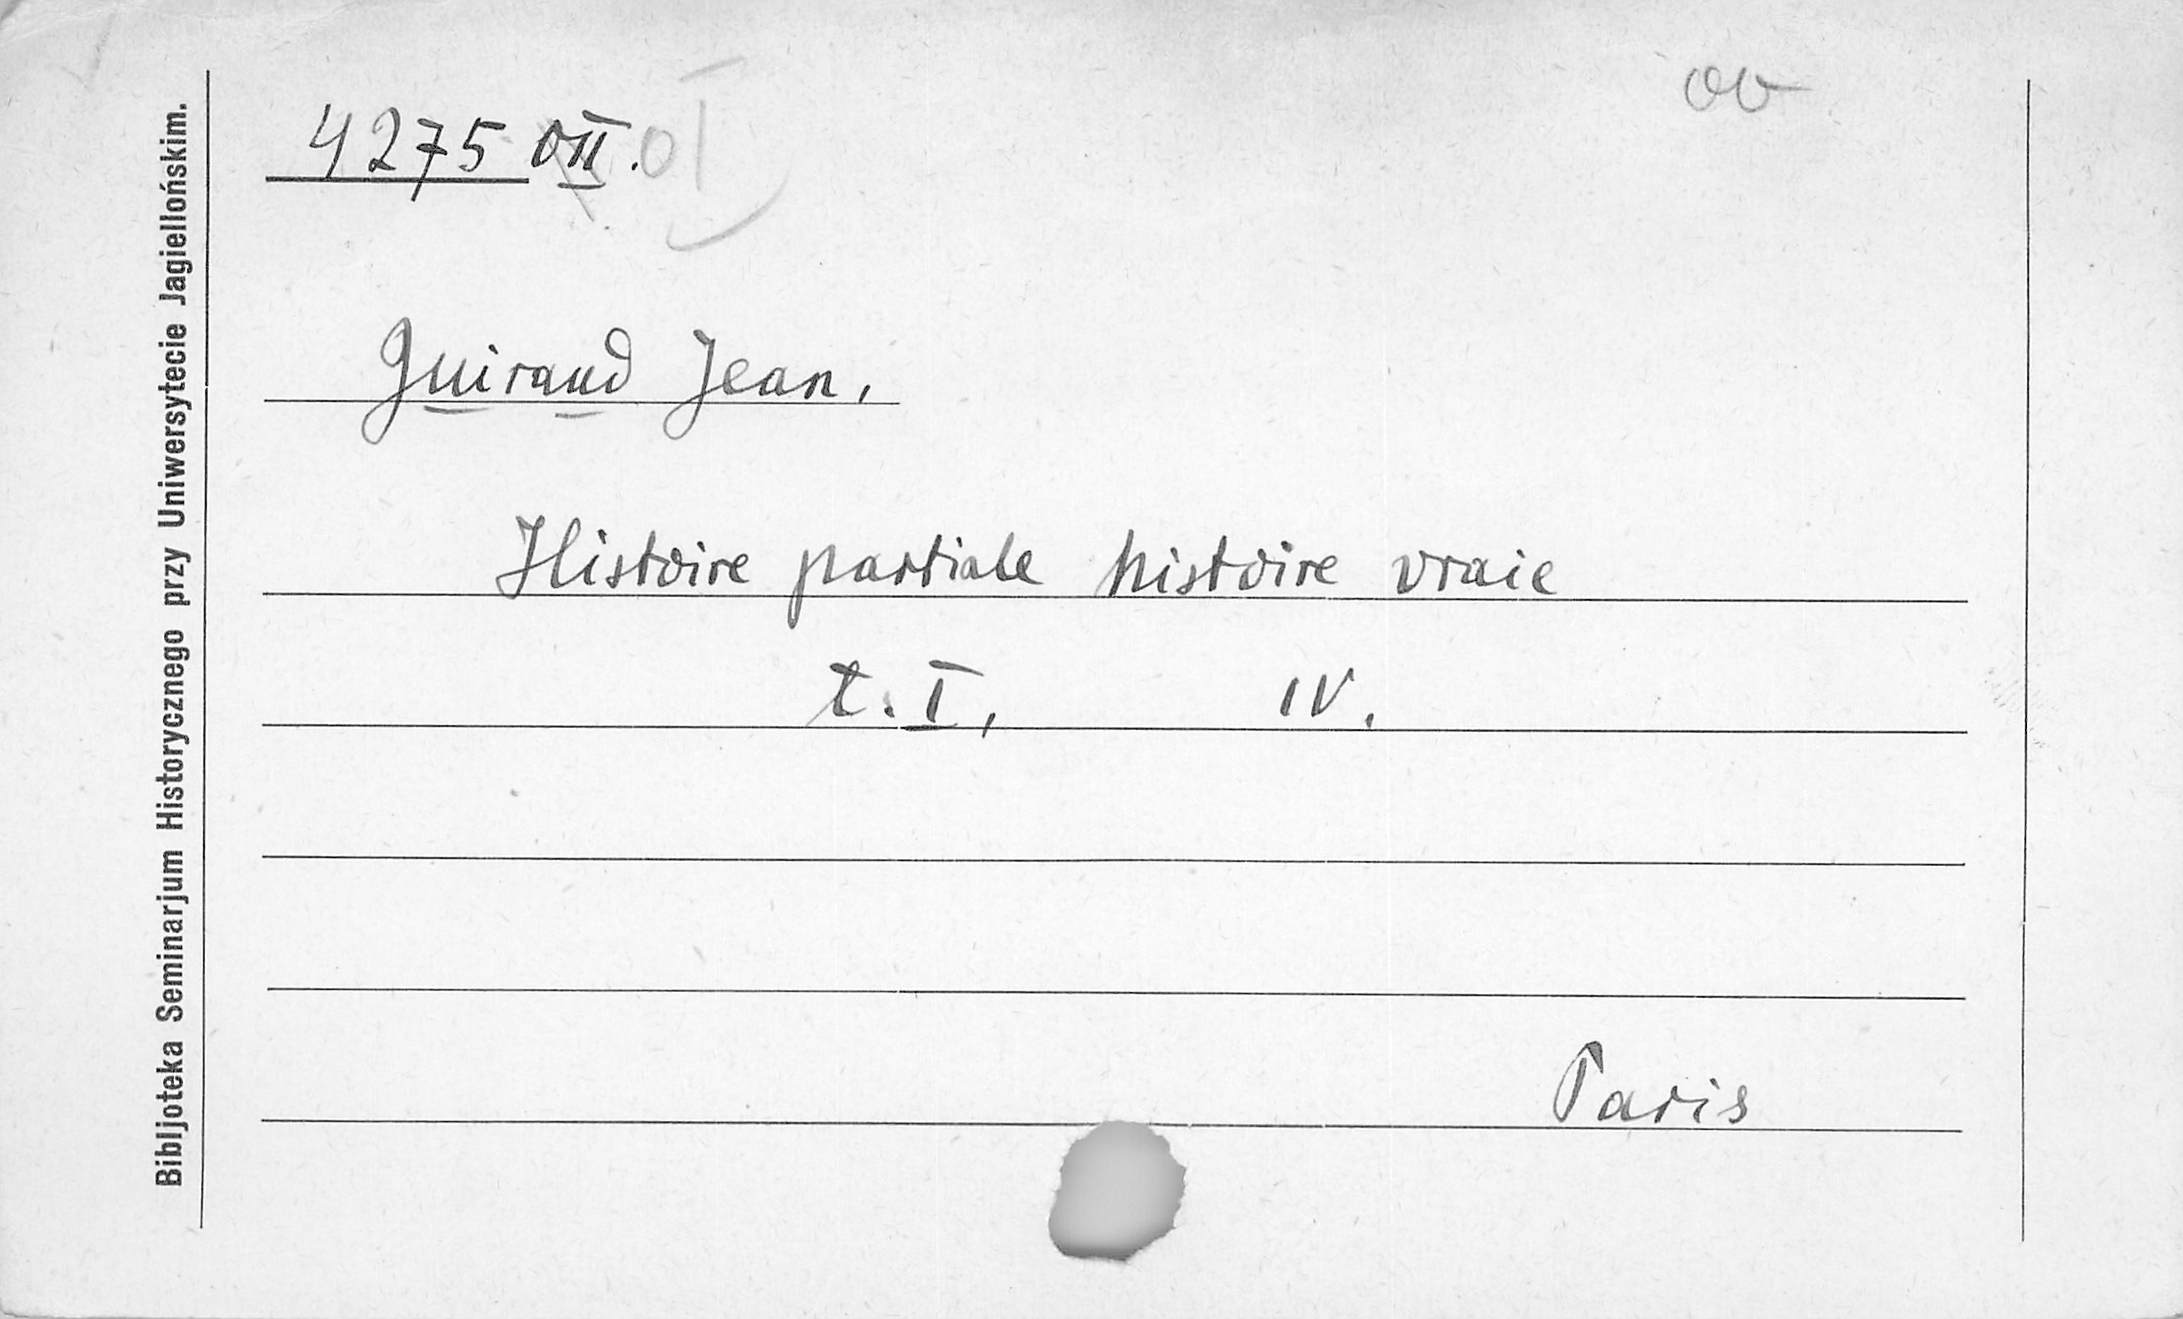 4275 OII. OI
Guiraud Jean.
Histoire partiale histoire vraie
t. I, IV.
Paris
Bibljoteka Seminarjum Historycznego przy Uniwersytecie Jagiellońskim.